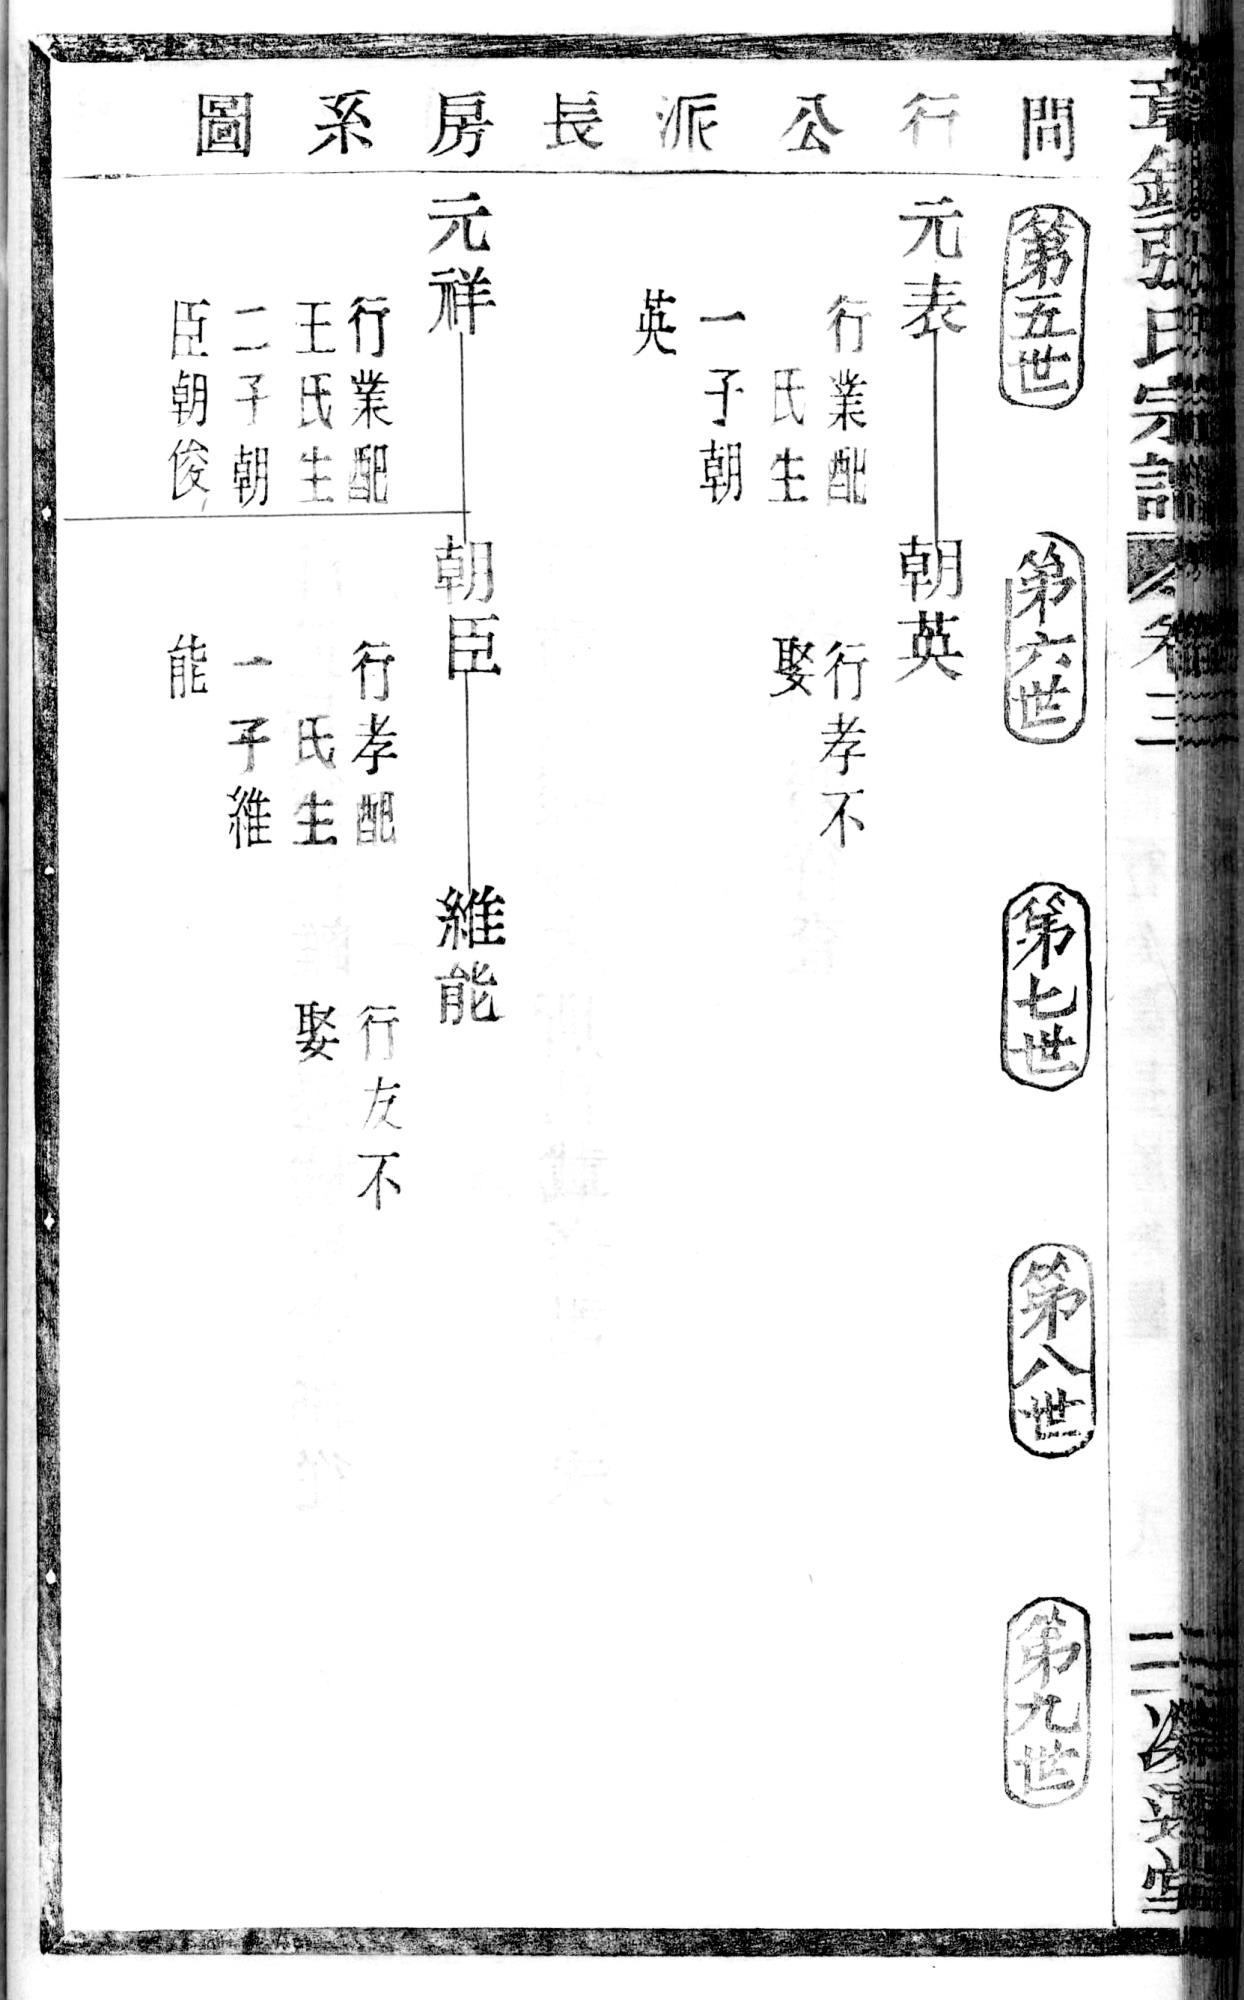 問行公派長房系圖
第五世
第六世
第七世
第八世
第九世
元表
行業配
氏生
一子朝
英
朝英
行孝不
娶
元祥
行業配
王氏生
二子朝
臣朝俊
朝臣
行孝配
氏生
一子維
能
維能
行友不
娶
張氏宗譜
卷三
二
堂